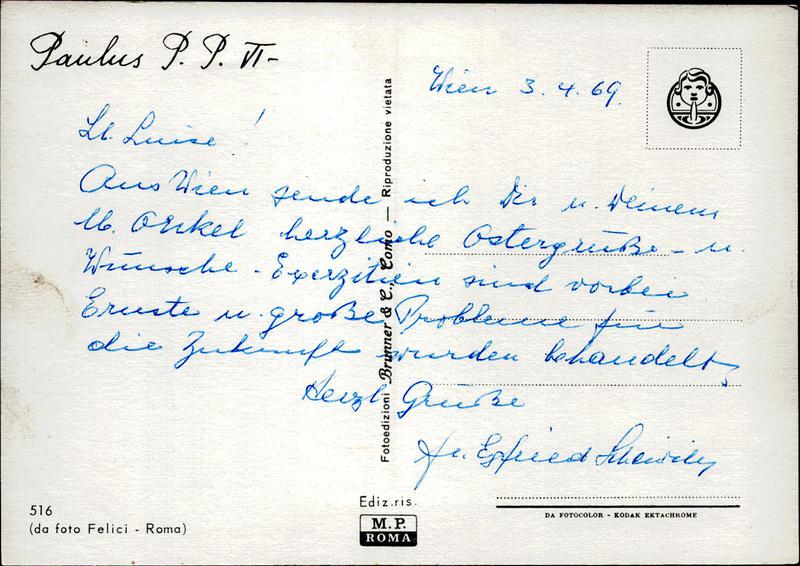 Paulus P. P. VI-
Wien 3.4.69.
Lb. Luise!
Aus Wien sende ich Dir u. Deinem
lb. Onkel herzliche Ostergrüße - u.
Wünsche - Exerzitien sind vorbei
Ernste u. große Probleme für
die Zukunft wurden behandelt,
Herzl. Grüße
fr.
Fotoedizioni Brunner & C., Como — Riproduzione vietata
516
(da foto Felici - Roma)
Ediz.ris.
M.P.
ROMA
DA FOTOCOLOR - KODAK EKTACHROME